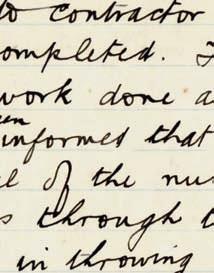 to contractor
completed.
work done a
een
informed that
of the nu
s through
in throwing